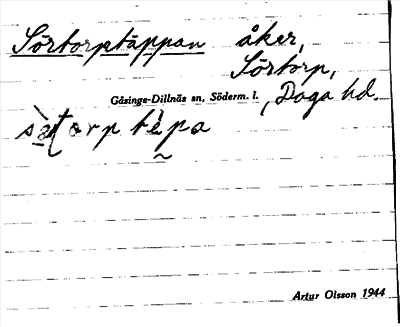 Sörtorptäppan åker,
Sörtorp,
Gåsinge-Dillnäs sn, Söderm. l., Daga hd.
Artur Olsson 1944